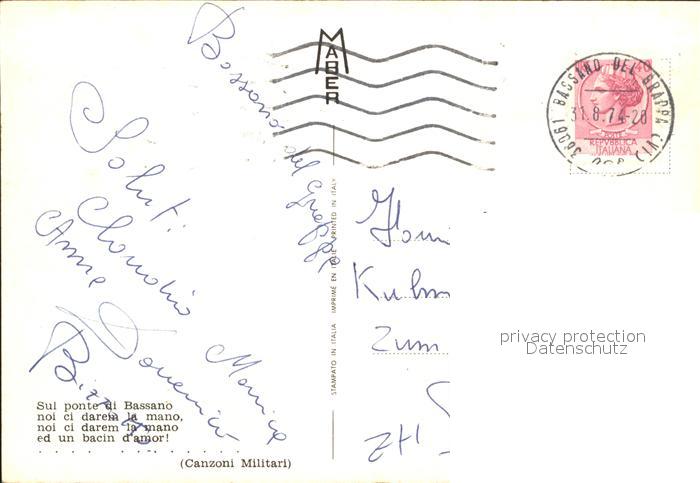 Bassano del Grappa
Saluti
Claudio
Anna
Domenico
Monica
Bizzotto
Sul ponte di Bassano
noi ci darem la mano,
noi ci darem la mano
ed un bacin d'amor!
(Canzoni Militari)
MABER
STAMPATO IN ITALIA IMPRIMÉ EN ITALIE PRINTED IN ITALY
36061 BASSANO DEL GRAPPA (VI)
31.8.74-20
POSTE
REPVBBLICA
ITALIANA
Kuhn
Zum
privacy protection
Datenschutz